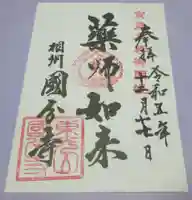 奉拝
令和五年
十二月十七日
薬師如来
相州
國分寺